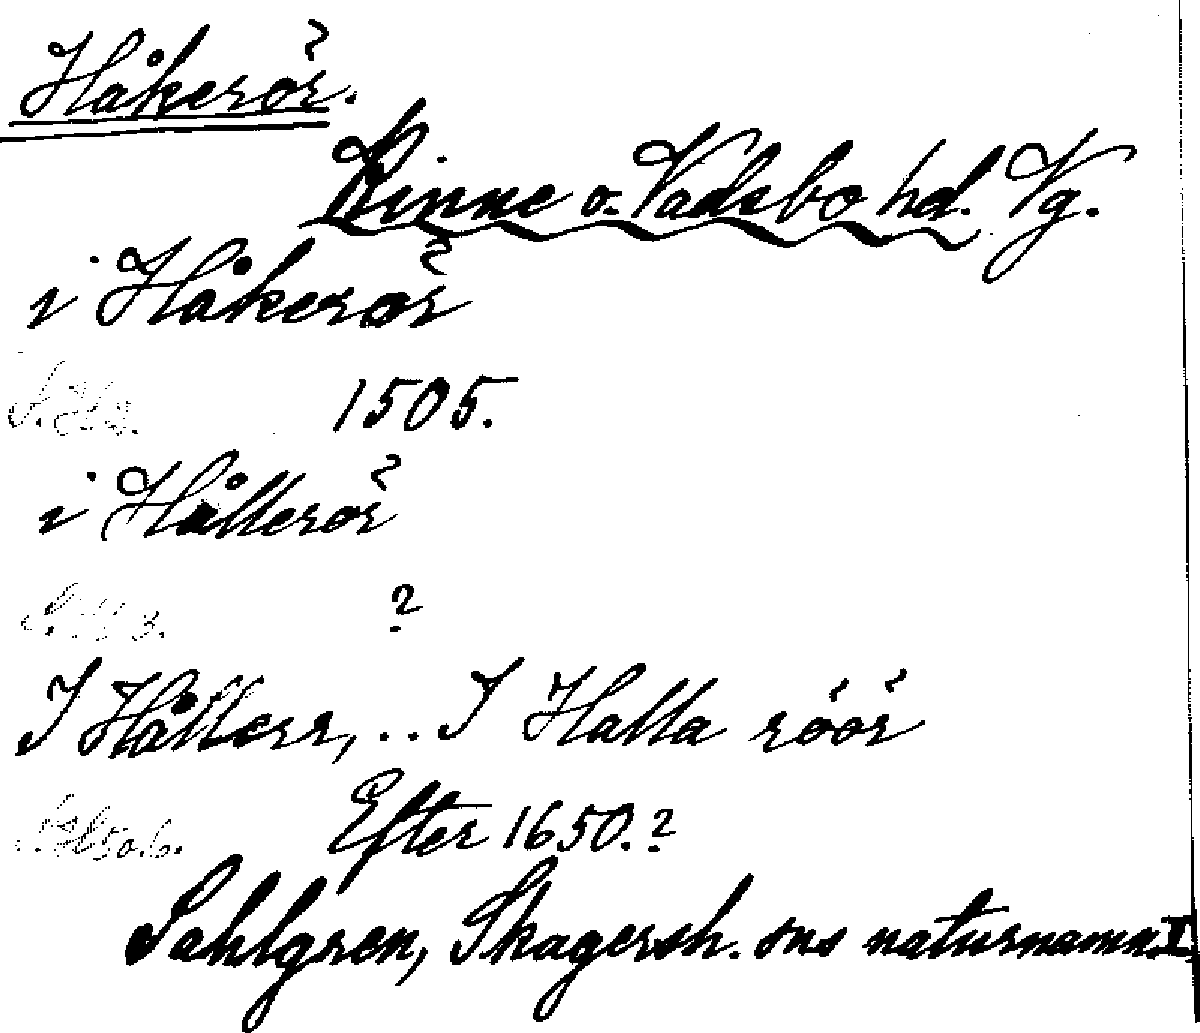 Håkerör.
Kinne o. Vadsbo hd. Vg.
i Håkerör
1505.
i Hållerör
?
I Hållerr, .. I Halla röör
Efter 1650.?
Sahlgren, Skagersh. sns naturnamn I